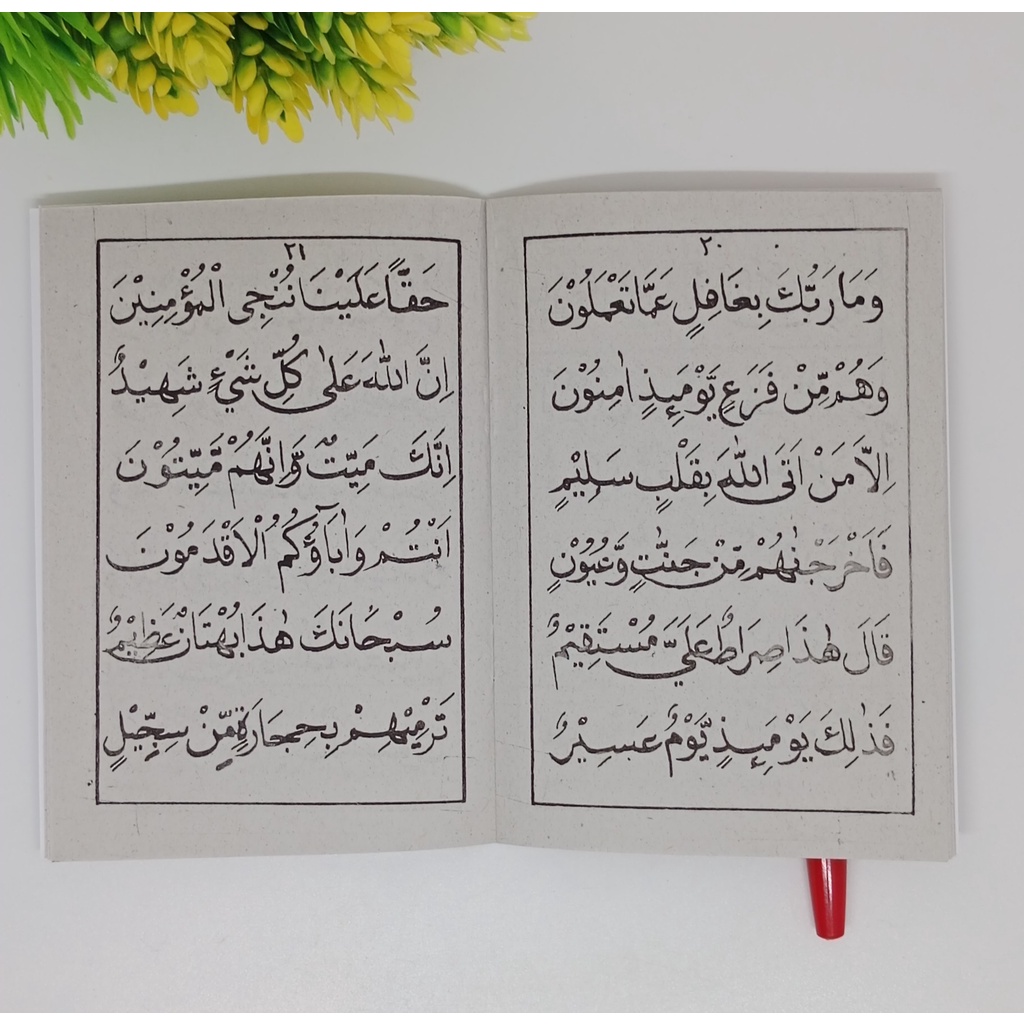 ٢٠
وَمَا رَبُّكَ بِغَافِلٍ عَمَّا تَعْمَلُوْنَ
وَهُمْ مِّنْ فَزَعٍ يَّوْمَئِذٍ اٰمِنُوْنَ
اِلَّا مَنْ اَتَى اللّٰهَ بِقَلْبٍ سَلِيْمٍ
فَاَخْرَجْنٰهُمْ مِّنْ جَنّٰتٍ وَّعُيُوْنٍ
قَالَ هٰذَا صِرَاطٌ عَلَيَّ مُسْتَقِيْمٌ
فَذٰلِكَ يَوْمَئِذٍ يَّوْمٌ عَسِيْرٌ
٢١
حَقًّا عَلَيْنَا نُنْجِى الْمُؤْمِنِيْنَ
اِنَّ اللّٰهَ عَلٰى كُلِّ شَيْءٍ شَهِيْدٌ
اِنَّكَ مَيِّتٌ وَّاِنَّهُمْ مَّيِّتُوْنَ
اَنْتُمْ وَاٰبَآؤُكُمُ الْاَقْدَمُوْنَ
سُبْحَانَكَ هٰذَا بُهْتَانٌ عَظِيْمٌ
تَرْمِيْهِمْ بِحِجَارَةٍ مِّنْ سِجِّيْلٍ